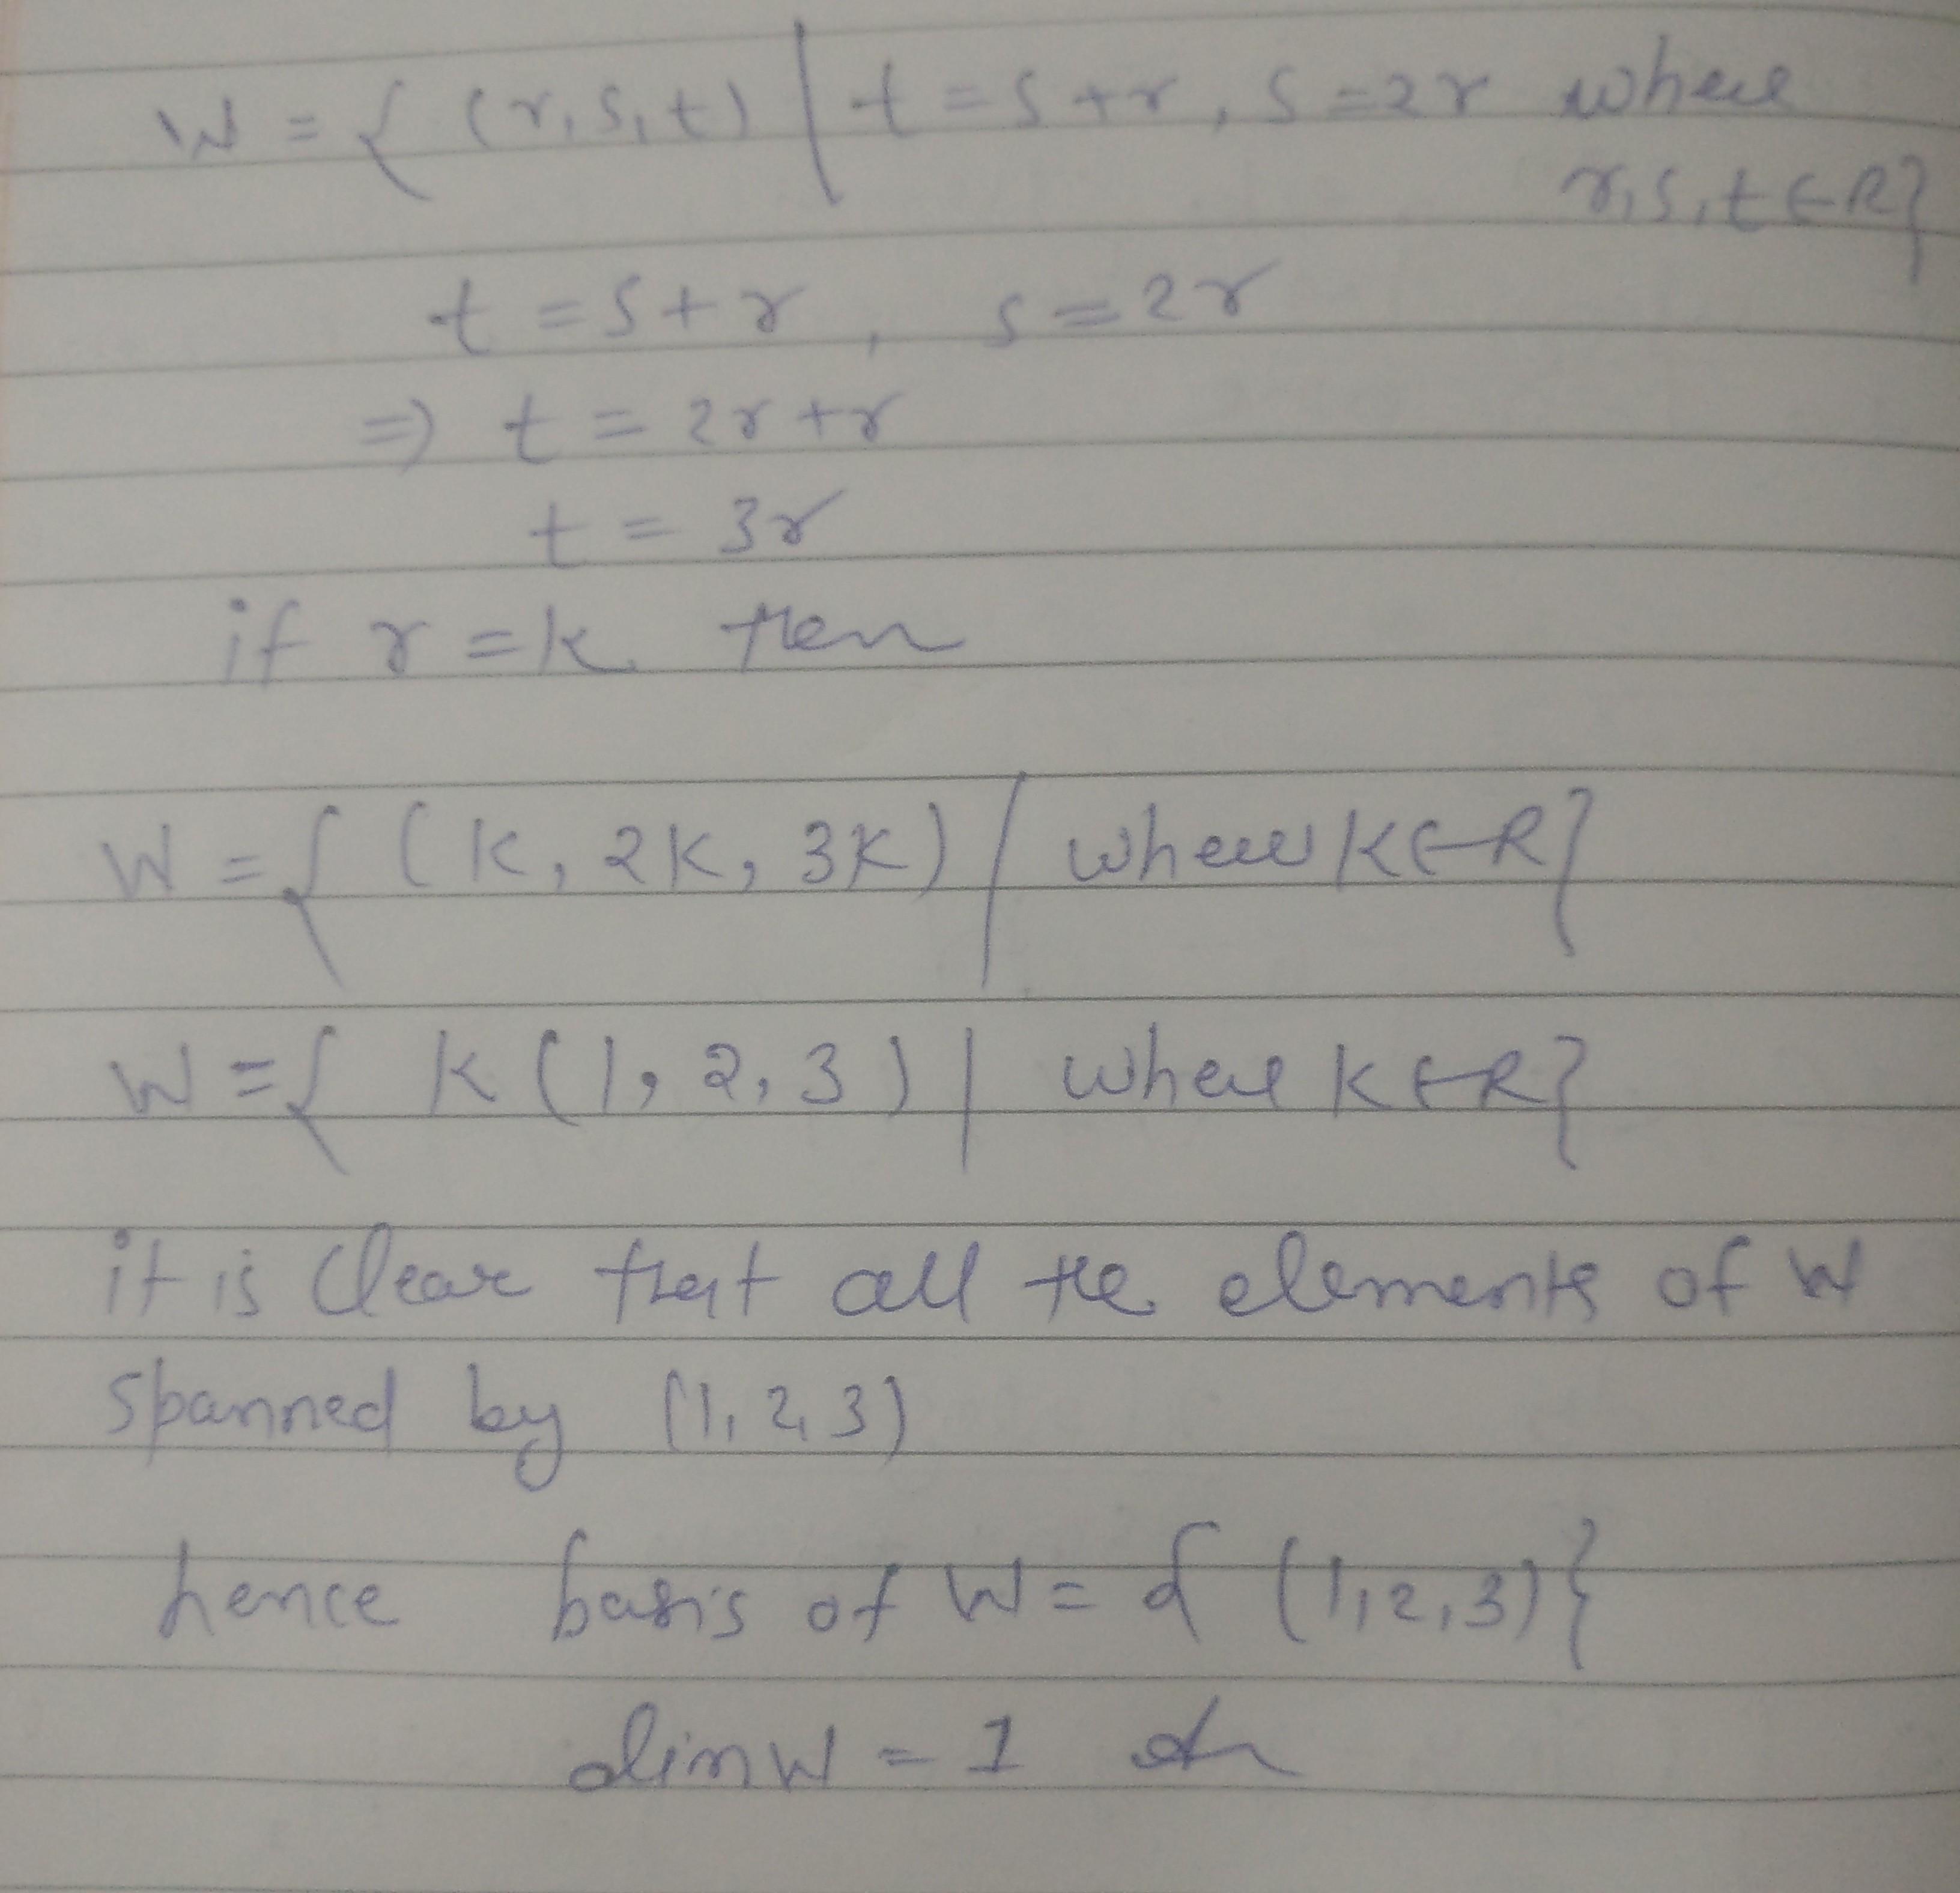 W = { (r, s, t) | t = s + r, s = 2r where
r, s, t ∈ R}
t = s + r , s = 2r
=> t = 2r + r
t = 3r
if r = k then
W = { (K, 2K, 3K) | where K ∈ R}
W = { K (1, 2, 3) | where K ∈ R}
it is clear that all the elements of W
spanned by (1, 2, 3)
hence basis of W = { (1, 2, 3)}
dim W = 1